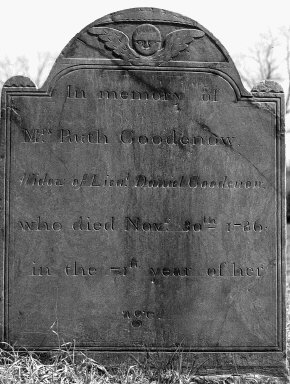 In memory of
Mrs Ruth Goodenow.
Widow of Lieut Daniel Goodenow
who died Novr 30th 1786.
in the 71th year of her
age.